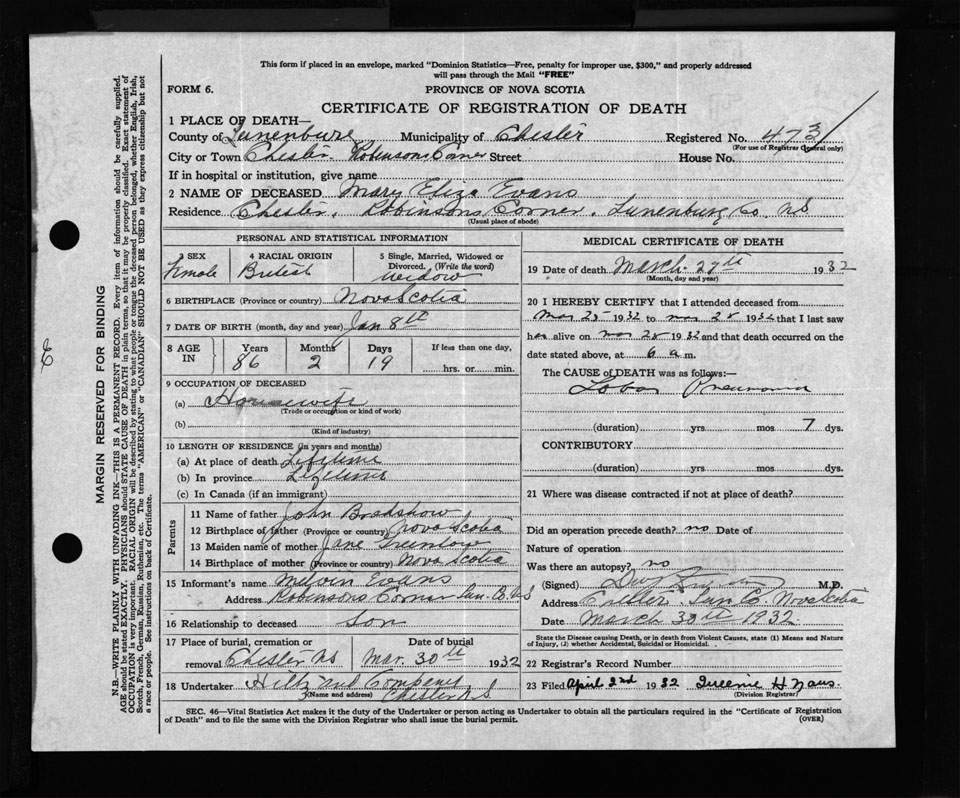 This form if placed in an envelope, marked "Dominion Statistics—Free, penalty for improper use, $300," and properly addressed
will pass through the Mail "FREE"
FORM 6.
PROVINCE OF NOVA SCOTIA
CERTIFICATE OF REGISTRATION OF DEATH
1 PLACE OF DEATH—
County of Lunenburg Municipality of Chester Registered No. 473
(For use of Registrar General only)
City or Town Chester Robinsons Corner Street House No.
If in hospital or institution, give name
2 NAME OF DECEASED Mary Eliza Evans
Residence Chester, Robinsons Corner, Lunenburg Co. NS
(Usual place of abode)
PERSONAL AND STATISTICAL INFORMATION
3 SEX 4 RACIAL ORIGIN 5 Single, Married, Widowed or
Divorced. (Write the word)
Female British widow
6 BIRTHPLACE (Province or country) Nova Scotia
7 DATE OF BIRTH (month, day and year) Jan 8th
8 AGE IN Years Months Days If less than one day,
86 2 19 hrs. or min.
9 OCCUPATION OF DECEASED
(a) Housewife
(Trade or occupation or kind of work)
(b)
(Kind of industry)
10 LENGTH OF RESIDENCE (in years and months)
(a) At place of death Lifetime
(b) In province Lifetime
(c) In Canada (if an immigrant)
Parents
11 Name of father John Bradshaw
12 Birthplace of father (Province or country) Nova Scotia
13 Maiden name of mother Jane
14 Birthplace of mother (Province or country) Nova Scotia
15 Informant's name Melvin Evans
Address Robinsons Corner Lun. Co. NS
16 Relationship to deceased Son
17 Place of burial, cremation or Date of burial
removal Chester NS Mar. 30th 1932
18 Undertaker Hiltz and Company
(Name and address) Chester N S
MEDICAL CERTIFICATE OF DEATH
19 Date of death March 27th 1932
(Month, day and year)
20 I HEREBY CERTIFY that I attended deceased from
Mar 25 1932 to mar 28 1932 that I last saw
her alive on mar 28 1932 and that death occurred on the
date stated above, at 6 a m.
The CAUSE of DEATH was as follows:—
Lobar Pneumonia
(duration) yrs mos 7 dys.
CONTRIBUTORY
(duration) yrs mos dys.
21 Where was disease contracted if not at place of death?
Did an operation precede death? no Date of
Nature of operation
Was there an autopsy? no
(Signed) M.D.
Address Chester, Lun Co Nova Scotia
Date March 30th 1932
State the Disease causing Death, or in death from Violent Causes, state (1) Means and Nature
of Injury, (2) whether Accidental, Suicidal or Homicidal.
22 Registrar's Record Number
23 Filed April 2nd 1932
(Division Registrar)
SEC. 46—Vital Statistics Act makes it the duty of the Undertaker or person acting as Undertaker to obtain all the particulars required in the "Certificate of Registration
of Death" and to file the same with the Division Registrar who shall issue the burial permit.
(OVER)
MARGIN RESERVED FOR BINDING
N.B.—WRITE PLAINLY WITH UNFADING INK—THIS IS A PERMANENT RECORD. Every item of information should be carefully supplied.
AGE should be stated EXACTLY. PHYSICIANS should STATE CAUSE OF DEATH in plain terms, so that it may be properly classified. Exact statement of
OCCUPATION is very important. RACIAL ORIGIN will be described by stating to what people or tongue the deceased person belonged, whether English, Irish,
Scotch, French, German, Russian, Ruthenian, etc. The terms "AMERICAN" or "CANADIAN" SHOULD NOT BE USED as they express citizenship but not
a race or people. See instructions on back of Certificate.